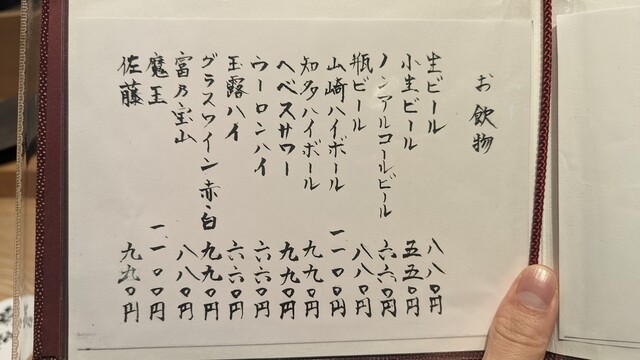 お飲物
生ビール 八八〇円
小生ビール 五五〇円
ノンアルコールビール 六六〇円
瓶ビール 八八〇円
山崎ハイボール 一一〇〇円
知多ハイボール 九九〇円
ヘベスサワー 九九〇円
ウーロンハイ 六六〇円
玉露ハイ 六六〇円
グラスワイン赤・白 九九〇円
富乃宝山 八八〇円
魔王 一一〇〇円
佐藤 九九〇円